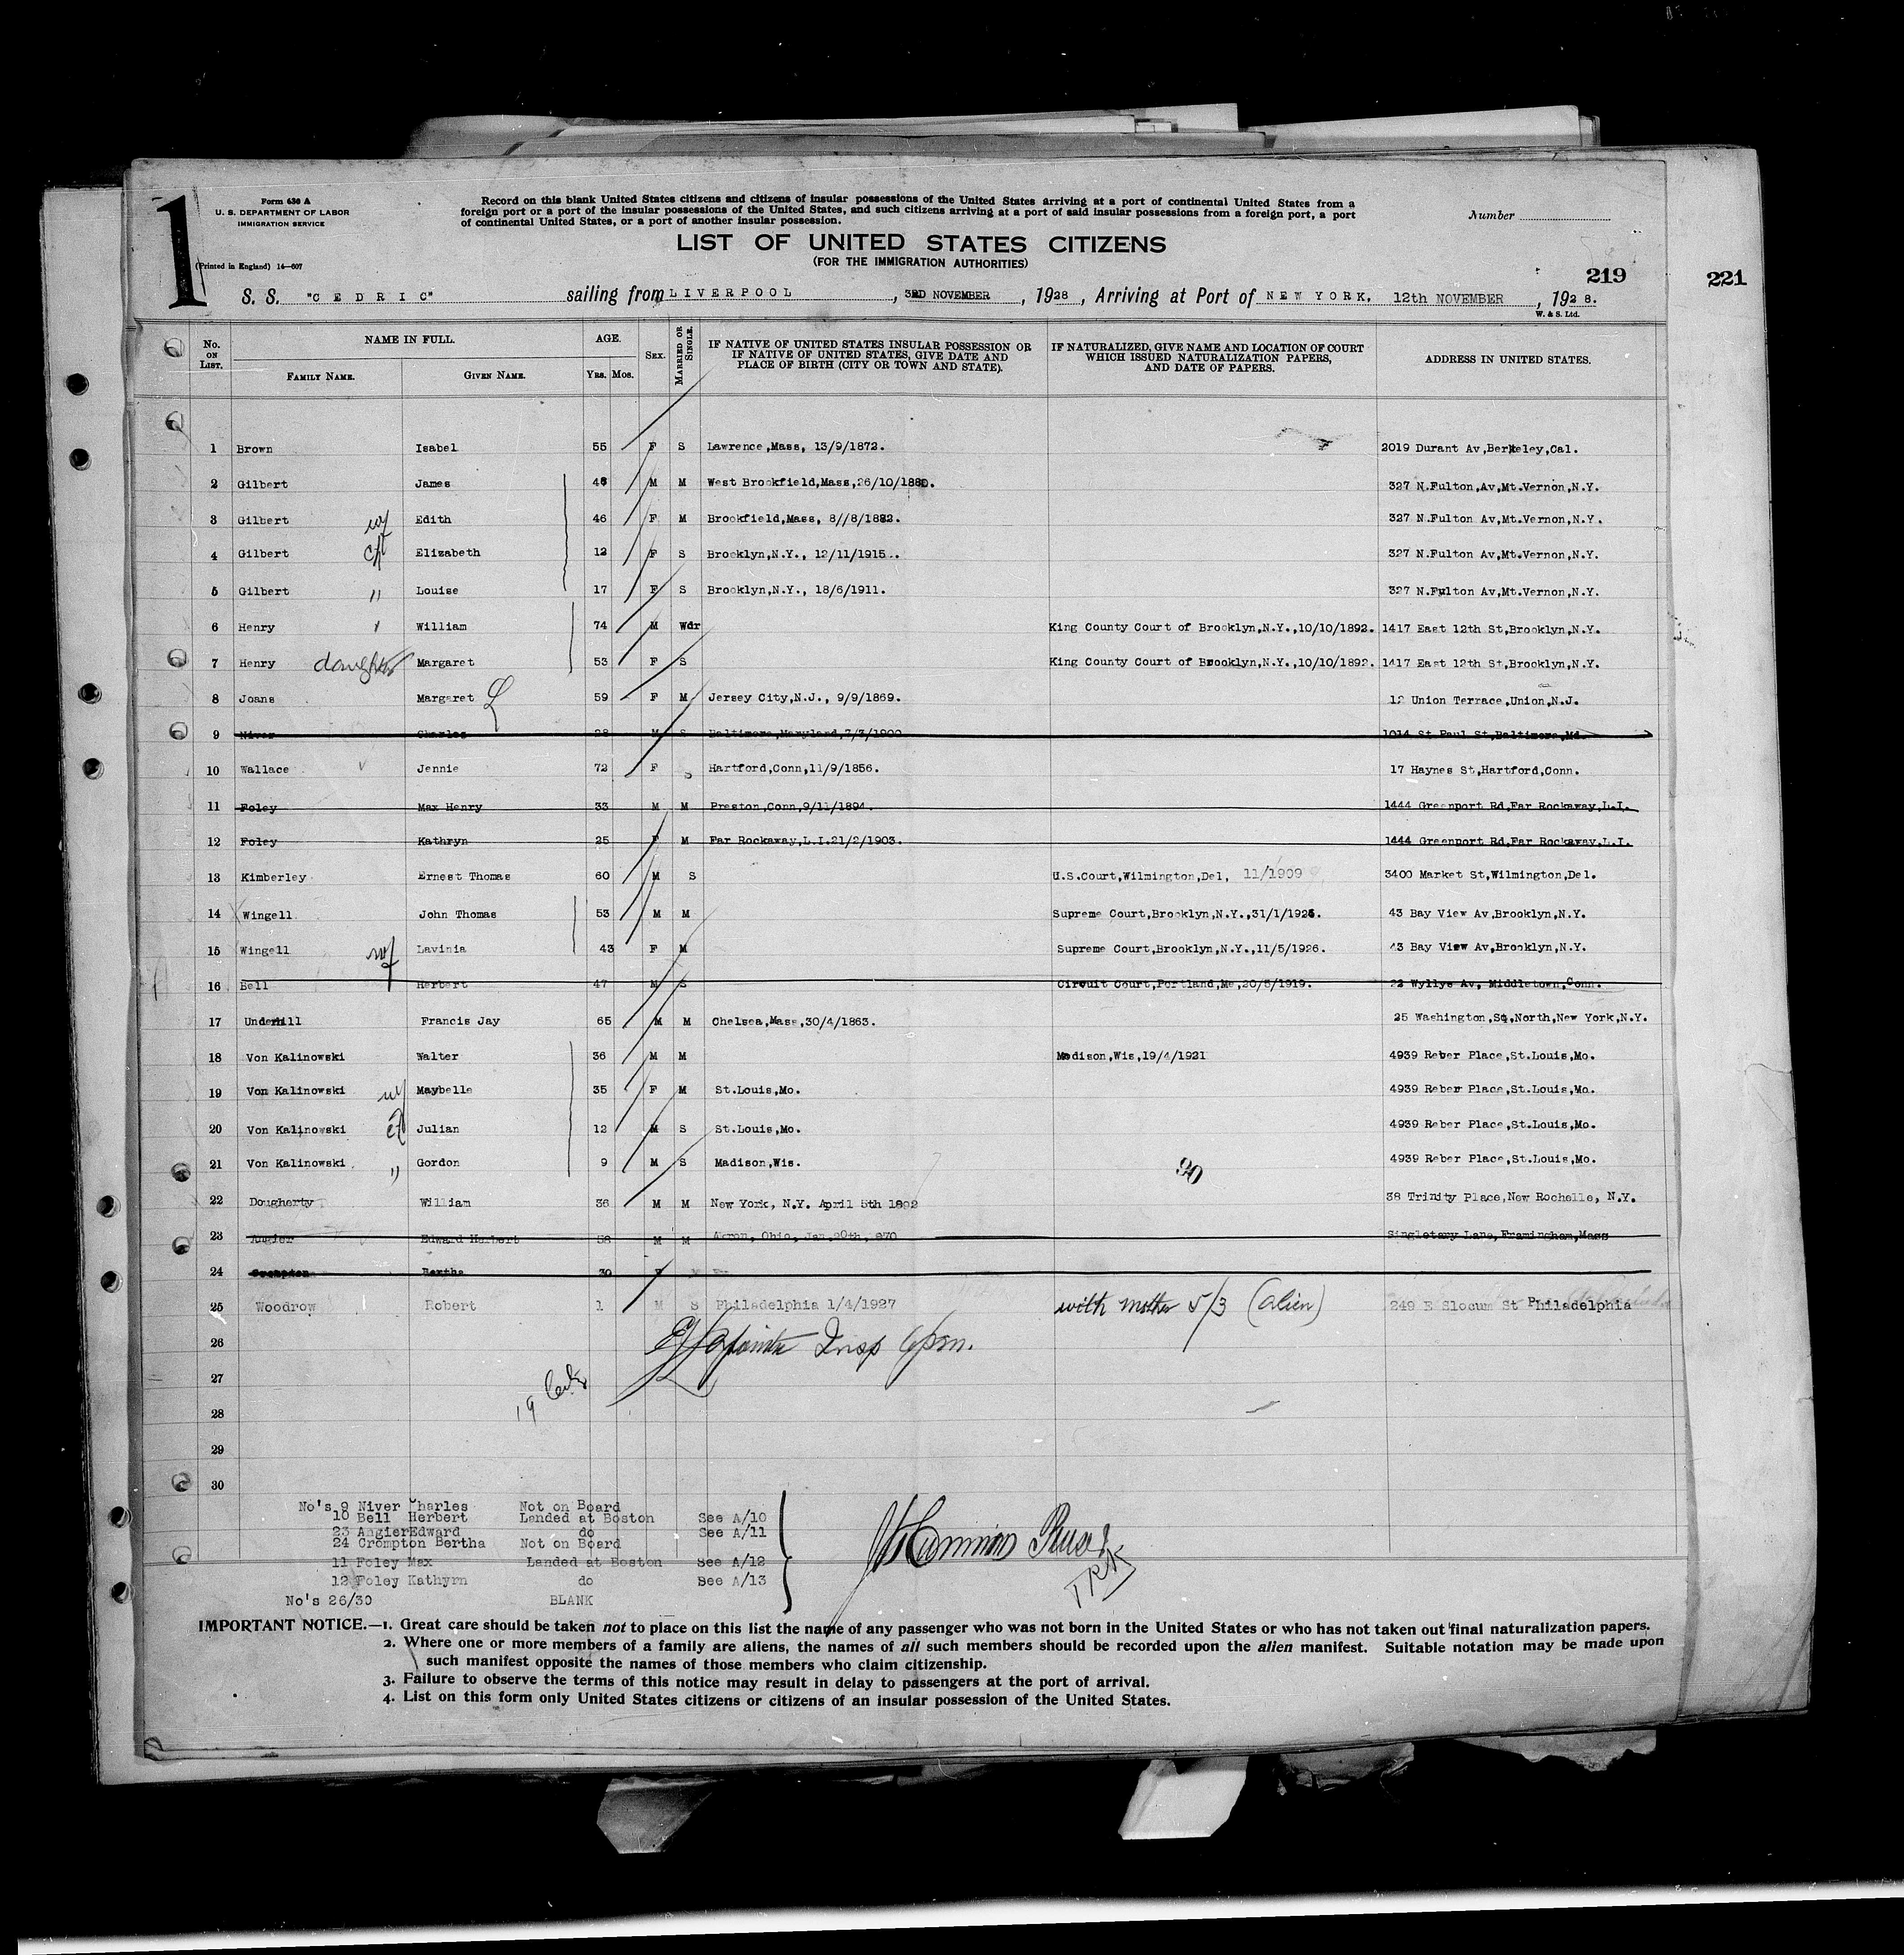 1
Form 630 A
U. S. DEPARTMENT OF LABOR
IMMIGRATION SERVICE
(Printed in England) 14—607
Record on this blank United States citizens and citizens of insular possessions of the United States arriving at a port of continental United States from a
foreign port or a port of the insular possessions of the United States, and such citizens arriving at a port of said insular possessions from a foreign port, a port
of continental United States, or a port of another insular possession.
Number
LIST OF UNITED STATES CITIZENS
(FOR THE IMMIGRATION AUTHORITIES)
219
221
S. S. "CEDRIC" sailing from LIVERPOOL, 3RD NOVEMBER, 1928, Arriving at Port of NEW YORK, 12th NOVEMBER, 1928.
W. & S. Ltd.
No. ON LIST. NAME IN FULL. FAMILY NAME. GIVEN NAME. AGE. YRS. MOS. SEX. MARRIED OR SINGLE. IF NATIVE OF UNITED STATES INSULAR POSSESSION OR IF NATIVE OF UNITED STATES, GIVE DATE AND PLACE OF BIRTH (CITY OR TOWN AND STATE). IF NATURALIZED, GIVE NAME AND LOCATION OF COURT WHICH ISSUED NATURALIZATION PAPERS, AND DATE OF PAPERS. ADDRESS IN UNITED STATES.
1 Brown Isabel 55 F S Lawrence,Mass, 13/9/1872. 2019 Durant Av,Berkeley,Cal.
2 Gilbert James 48 M M West Brookfield,Mass,26/10/1880. 327 N.Fulton,Av,Mt.Vernon,N.Y.
3 Gilbert wf Edith 46 F M Brookfield,Mass, 8//8/1882. 327 N.Fulton Av,Mt.Vernon,N.Y.
4 Gilbert Elizabeth 12 F S Brooklyn,N.Y., 12/11/1915.. 327 N.Fulton Av,Mt.Vernon,N.Y.
5 Gilbert " Louise 17 F S Brooklyn,N.Y., 18/6/1911. 327 N.Fulton Av,Mt.Vernon,N.Y.
6 Henry William 74 M Wdr King County Court of Brooklyn,N.Y.,10/10/1892. 1417 East 12th St,Brooklyn,N.Y.
7 Henry daughter Margaret 53 F S King County Court of Brooklyn,N.Y.,10/10/1892. 1417 East 12th St,Brooklyn,N.Y.
8 Joans Margaret L 59 F M Jersey City,N.J., 9/9/1869. 12 Union Terrace,Union,N.J.
9 Niver Charles 28 M S Baltimore,Maryland,7/3/1900 1014 St Paul St,Baltimore,Md.
10 Wallace Jennie 72 F S Hartford,Conn,11/9/1856. 17 Haynes St,Hartford,Conn.
11 Foley Max Henry 33 M M Preston,Conn,9/11/1894. 1444 Greenport Rd,Far Rockaway,L.I.
12 Foley Kathryn 25 F M Far Rockaway,L.I.21/2/1903. 1444 Greenport Rd,Far Rockaway,L.I.
13 Kimberley Ernest Thomas 60 M S U.S.Court,Wilmington,Del, 11/1909 3400 Market St,Wilmington,Del.
14 Wingell John Thomas 53 M M Supreme Court,Brooklyn,N.Y.,31/1/1926. 43 Bay View Av,Brooklyn,N.Y.
15 Wingell wf Lavinia 43 F M Supreme Court,Brooklyn,N.Y.,11/5/1926. 43 Bay View Av,Brooklyn,N.Y.
16 Bell Herbert 47 M S Circuit Court,Portland,Me,20/5/1919. 22 Wyllys Av, Middletown,Conn.
17 Underhill Francis Jay 65 M M Chelsea,Mass,30/4/1863. 25 Washington,Sq,North,New York,N.Y.
18 Von Kalinowski Walter 36 M M Madison,Wis,19/4/1921 4939 Reber Place,St.Louis,Mo.
19 Von Kalinowski wf Maybelle 35 F M St.Louis,Mo. 4939 Reber Place,St.Louis,Mo.
20 Von Kalinowski Julian 12 M S St.Louis,Mo. 4939 Reber Place,St.Louis,Mo.
21 Von Kalinowski " Gordon 9 M S Madison,Wis. 4939 Reber Place,St.Louis,Mo.
90
22 Dougherty William 36 M M New York, N.Y. April 5th 1892 38 Trinity Place,New Rochelle, N.Y.
23 Angier Edward Herbert 58 M M Akron, Ohio, Jan,20th, 870 Singletary Lane,Framingham,Mass
24 Crompton Bertha 30 F
25 Woodrow Robert 1 M S Philadelphia 1/4/1927 with mother 5/3 (alien) 249 E Slocum St Philadelphia
26 Insp
27
19
28
29
30
No's 9 Niver Charles Not on Board
16 Bell Herbert Landed at Boston See A/10
23 AngierEdward do See A/11
24 Crompton Bertha Not on Board
11 Foley Max Landed at Boston See A/12
12 Foley Kathyrn do See A/13
No's 26/30 BLANK
IMPORTANT NOTICE.—1. Great care should be taken not to place on this list the name of any passenger who was not born in the United States or who has not taken out final naturalization papers.
2. Where one or more members of a family are aliens, the names of all such members should be recorded upon the alien manifest. Suitable notation may be made upon
such manifest opposite the names of those members who claim citizenship.
3. Failure to observe the terms of this notice may result in delay to passengers at the port of arrival.
4. List on this form only United States citizens or citizens of an insular possession of the United States.